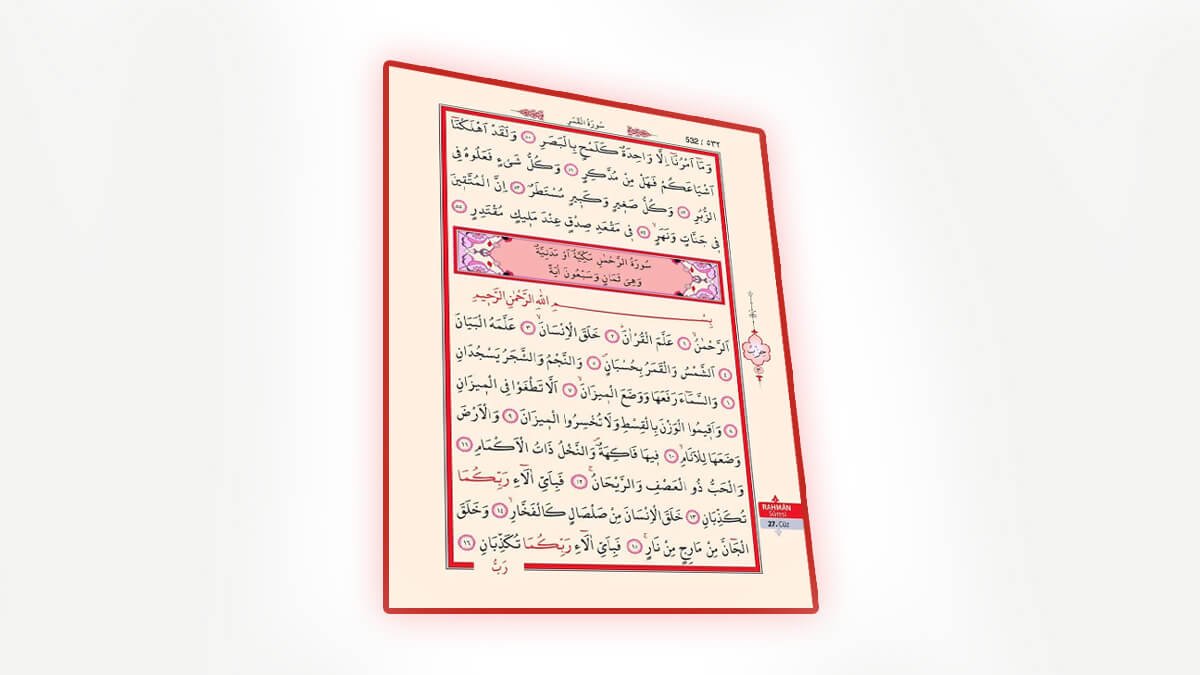 سُورَةُ الْقَمَرِ
532 / ٥٣٢
وَمَٓا اَمْرُنَٓا اِلَّا وَاحِدَةٌ كَلَمْحٍ بِالْبَصَرِ ﴿٥٠﴾ وَلَقَدْ اَهْلَكْنَٓا
اَشْيَاعَكُمْ فَهَلْ مِنْ مُدَّكِرٍ ﴿٥١﴾ وَكُلُّ شَيْءٍ فَعَلُوهُ فِي
الزُّبُرِ ﴿٥٢﴾ وَكُلُّ صَغٖيرٍ وَكَبٖيرٍ مُسْتَطَرٌ ﴿٥٣﴾ اِنَّ الْمُتَّقٖينَ
فٖي جَنَّاتٍ وَنَهَرٍۙ ﴿٥٤﴾ فٖي مَقْعَدِ صِدْقٍ عِنْدَ مَلٖيكٍ مُقْتَدِرٍ ﴿٥٥﴾
سُورَةُ الرَّحْمٰنِ مَكِّيَّةٌ اَوْ مَدَنِيَّةٌ
وَهِيَ ثَمَانٍ وَسَبْعُونَ اٰيَةً
بِسْمِ اللّٰهِ الرَّحْمٰنِ الرَّحٖيمِ
اَلرَّحْمٰنُۙ ﴿١﴾ عَلَّمَ الْقُرْاٰنَۜ ﴿٢﴾ خَلَقَ الْاِنْسَانَۙ ﴿٣﴾ عَلَّمَهُ الْبَيَانَ
﴿٤﴾ اَلشَّمْسُ وَالْقَمَرُ بِحُسْبَانٍۖ ﴿٥﴾ وَالنَّجْمُ وَالشَّجَرُ يَسْجُدَانِ
﴿٦﴾ وَالسَّمَٓاءَ رَفَعَهَا وَوَضَعَ الْمٖيزَانَۙ ﴿٧﴾ اَلَّا تَطْغَوْا فِي الْمٖيزَانِ
﴿٨﴾ وَاَقٖيمُوا الْوَزْنَ بِالْقِسْطِ وَلَا تُخْسِرُوا الْمٖيزَانَ ﴿٩﴾ وَالْاَرْضَ
وَضَعَهَا لِلْاَنَامِۙ ﴿١٠﴾ فٖيهَا فَاكِهَةٌۖ وَالنَّخْلُ ذَاتُ الْاَكْمَامِ ﴿١١﴾
وَالْحَبُّ ذُو الْعَصْفِ وَالرَّيْحَانُۚ ﴿١٢﴾ فَبِاَيِّ اٰلَٓاءِ رَبِّكُمَا
تُكَذِّبَانِ ﴿١٣﴾ خَلَقَ الْاِنْسَانَ مِنْ صَلْصَالٍ كَالْفَخَّارِۙ ﴿١٤﴾ وَخَلَقَ
الْجَٓانَّ مِنْ مَارِجٍ مِنْ نَارٍۚ ﴿١٥﴾ فَبِاَيِّ اٰلَٓاءِ رَبِّكُمَا تُكَذِّبَانِ ﴿١٦﴾
رَبُّ
حزب
RAHMÂN
Sûresi
27. Cüz